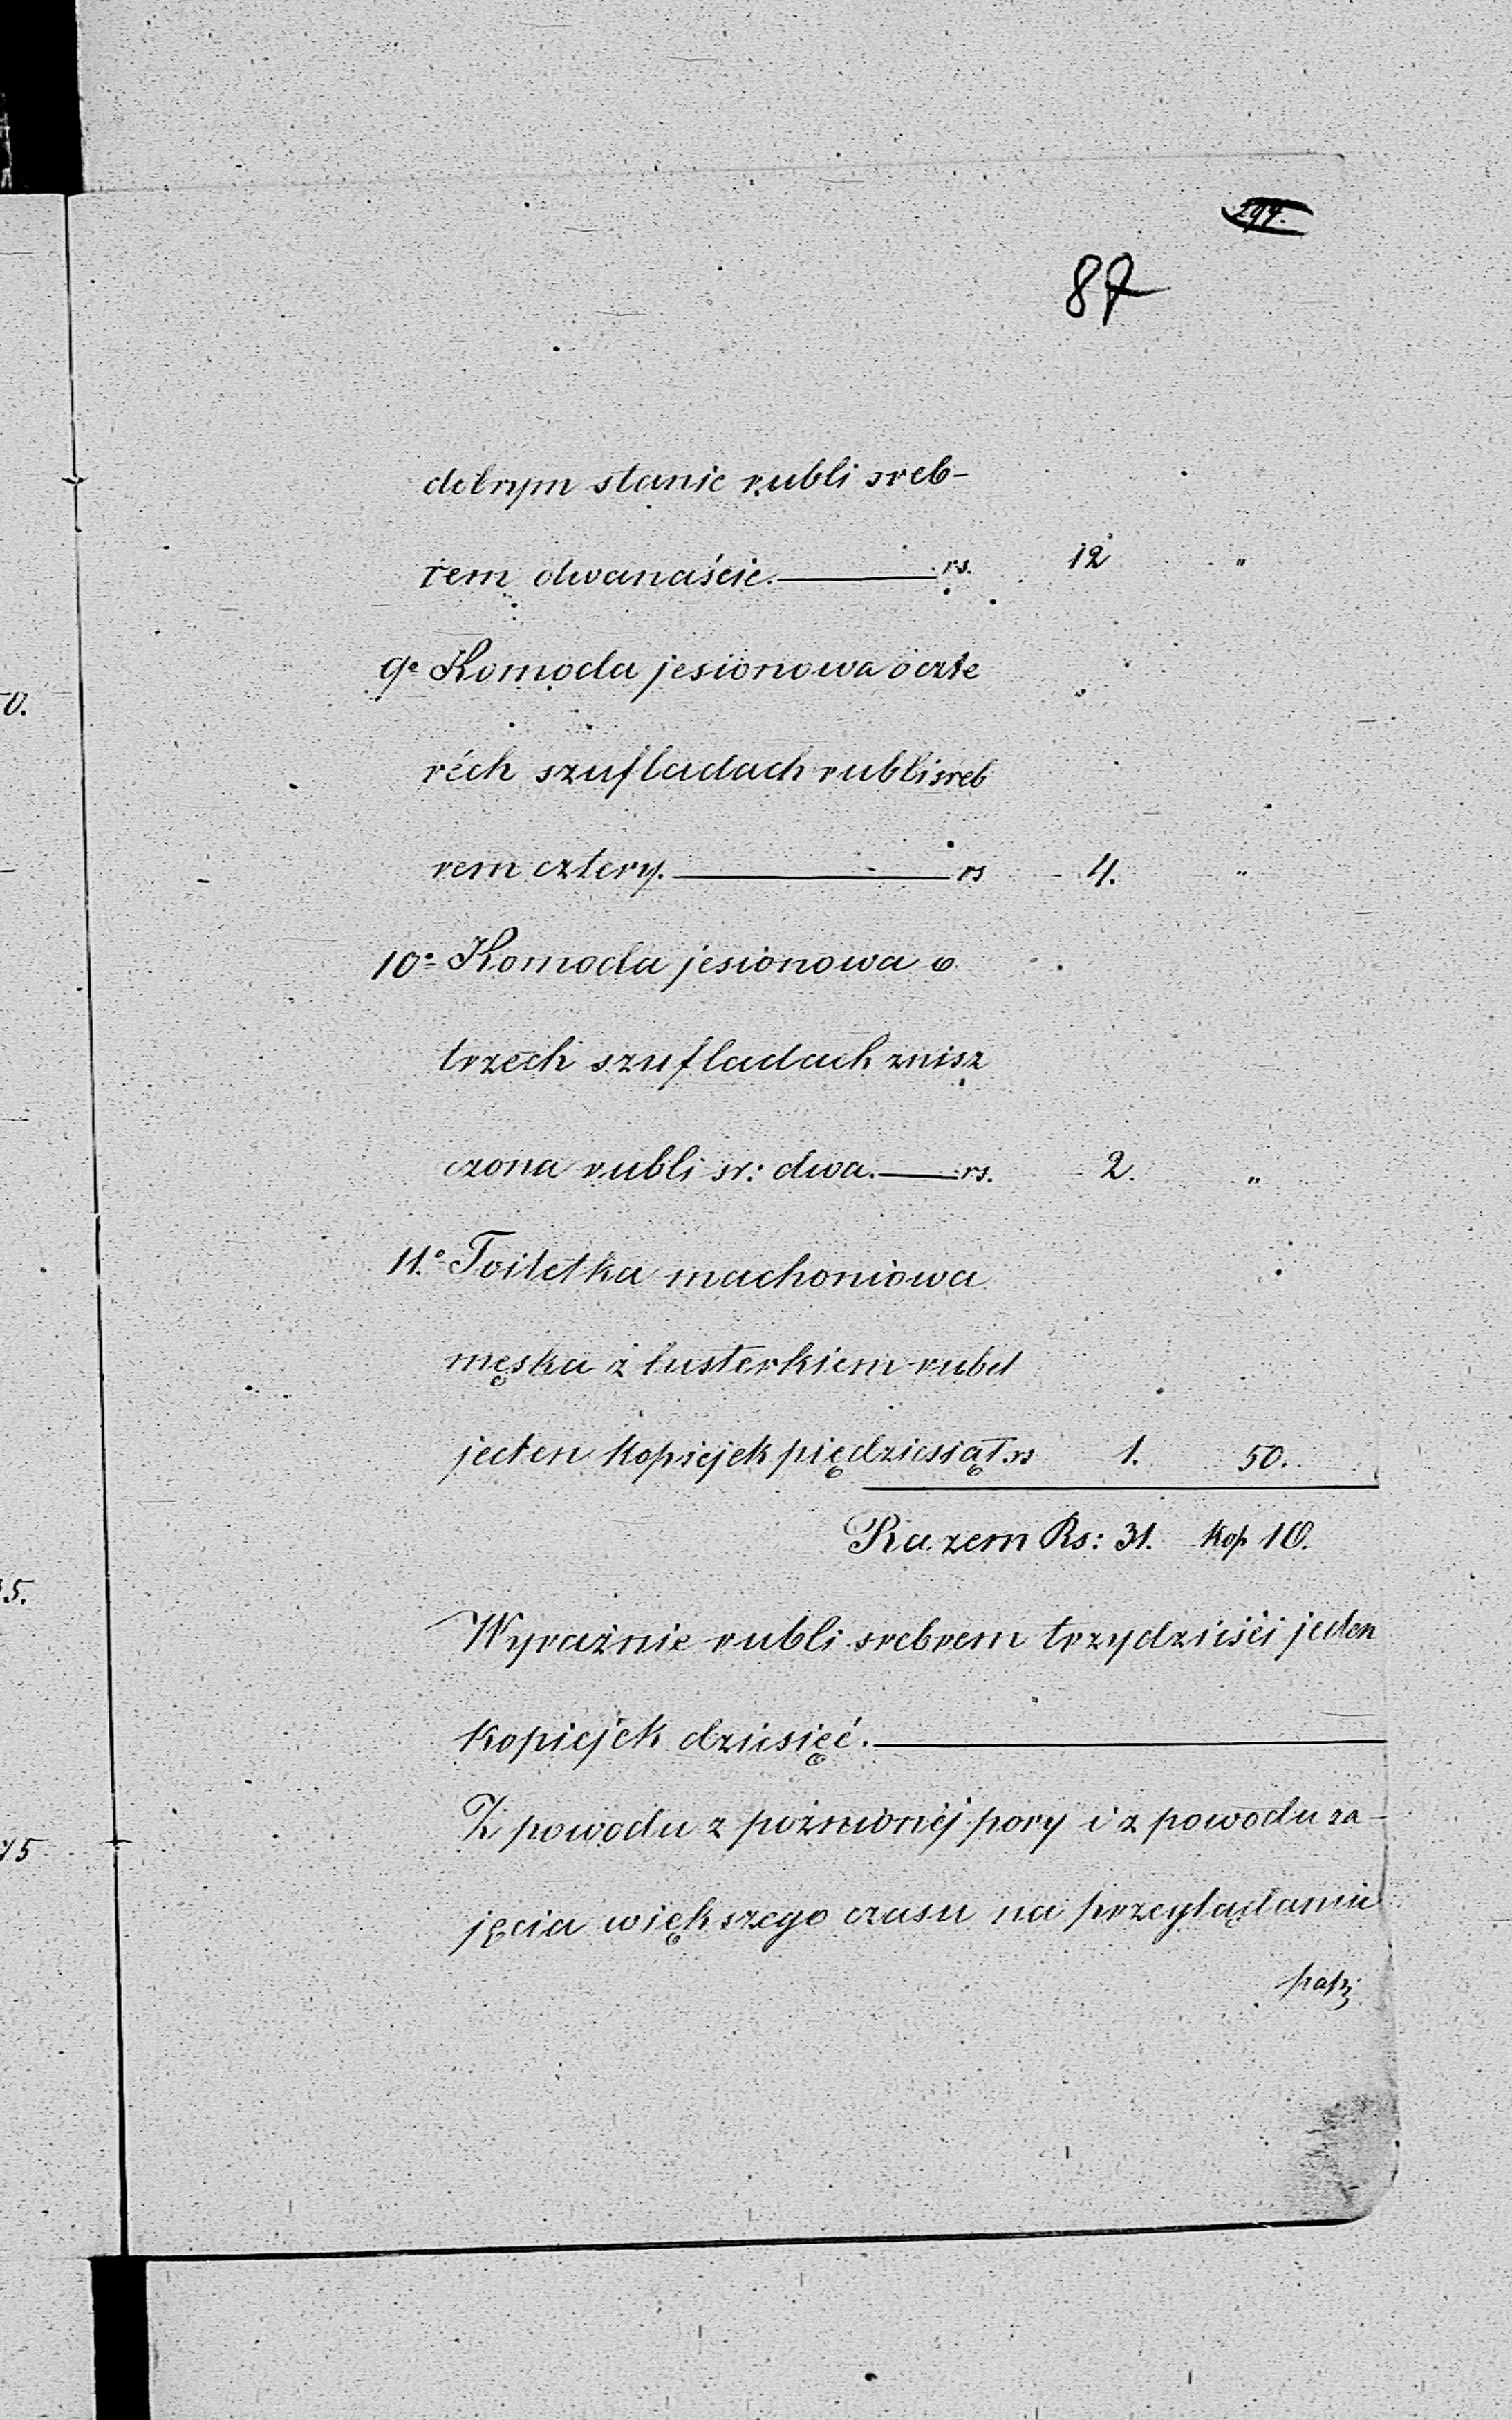 87
dobrym stanie rubli sreb-
rem dwanaście. rs. 12 "
9o Komoda jesionowa o czte
réch szufladach rubli sreb
rem cztery. rs 4. "
10o Komoda jesionowa o
trzech szufladach znisz
czona rubli sr: dwa. rs. 2. "
11.o Toiletka machoniowa
męska z lusterkiem rubel
jeden kopiejek piędziesiąt rs 1. 50.
Razem Rs: 31. kop 10.
Wyraźnie rubli srebrem trzydzieści jeden
kopiejek dziesięć.
Z powodu z poźnionéj pory i z powodu za-
jęcia większego czasu na przeglądaniu